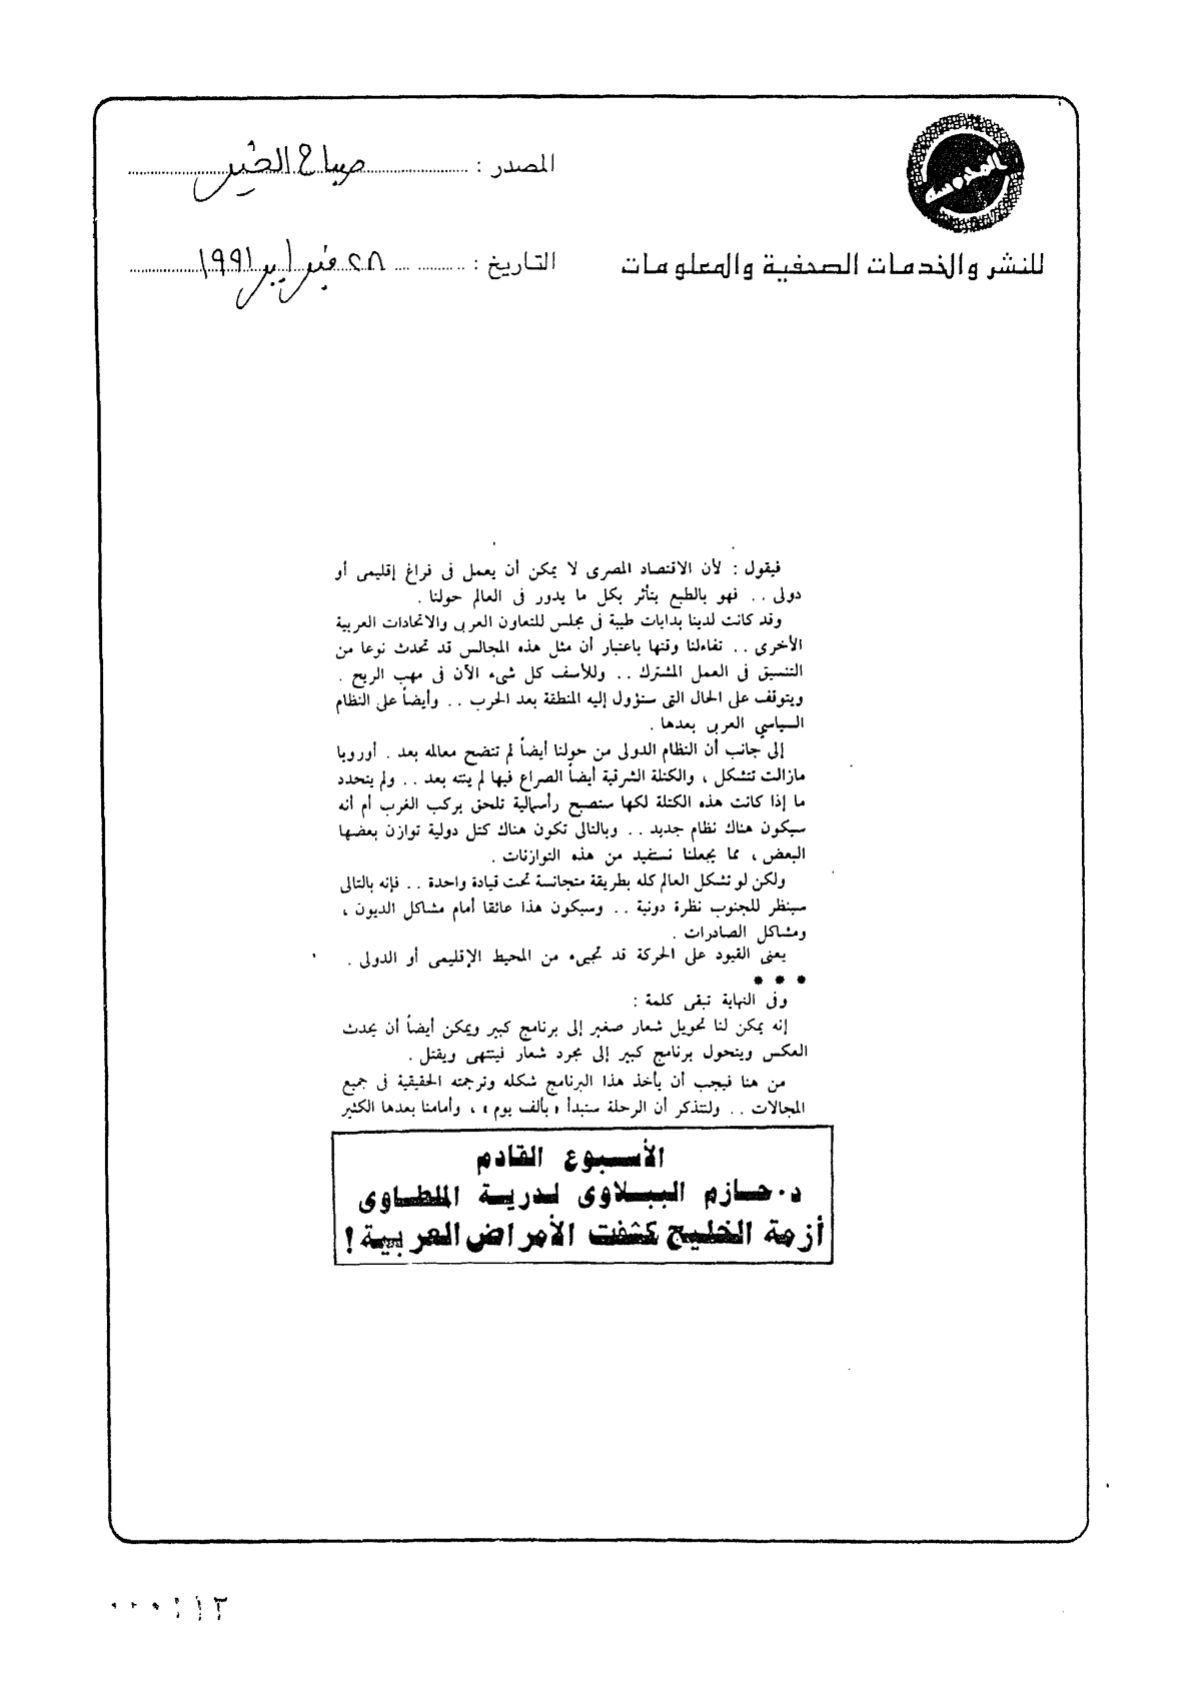 المصدر : صباح الخير
التاريخ : ٢٨ فبراير ١٩٩١
للنشر والخدمات الصحفية والمعلومات
فيقول : لأن الاقتصاد المصرى لا يمكن أن يعمل فى فراغ إقليمى أو
دولى .. فهو بالطبع يتأثر بكل ما يدور فى العالم حولنا .
وقد كانت لدينا بدايات طيبة فى مجلس للتعاون العربى والاتحادات العربية
الأخرى .. تفاءلنا وقتها باعتبار أن مثل هذه المجالس قد تحدث نوعا من
التنسيق فى العمل المشترك .. وللأسف كل شىء الآن فى مهب الريح .
ويتوقف على الحال التى ستؤول إليه المنطقة بعد الحرب .. وأيضاً على النظام
السياسي العربى بعدها .
إلى جانب أن النظام الدولى من حولنا أيضاً لم تتضح معالمه بعد . أوروبا
مازالت تتشكل ، والكتلة الشرقية أيضاً الصراع فيها لم ينته بعد .. ولم يتحدد
ما إذا كانت هذه الكتلة لكها ستصبح رأسمالية تلحق بركب الغرب أم أنه
سيكون هناك نظام جديد .. وبالتالى تكون هناك كتل دولية توازن بعضها
البعض ، مما يجعلنا نستفيد من هذه التوازنات .
ولكن لو تشكل العالم كله بطريقة متجانسة تحت قيادة واحدة .. فإنه بالتالى
سينظر للجنوب نظرة دونية .. وسيكون هذا عائقا أمام مشاكل الديون ،
ومشاكل الصادرات .
يعنى القيود على الحركة قد تجيىء من المحيط الإقليمى أو الدولى .
● ● ●
وفى النهاية تبقى كلمة :
إنه يمكن لنا تحويل شعار صغير إلى برنامج كبير ويمكن أيضاً أن يحدث
العكس ويتحول برنامج كبير إلى مجرد شعار فينتهى ويقتل .
من هنا فيجب أن يأخذ هذا البرنامج شكله وترجمته الحقيقية فى جميع
المجالات .. ولنتذكر أن الرحلة ستبدأ « بألف يوم » ، وأمامنا بعدها الكثير
الأسبوع القادم
د. حازم الببلاوى لدرية الملطاوى
أزمة الخليج كشفت الأمراض العربية !